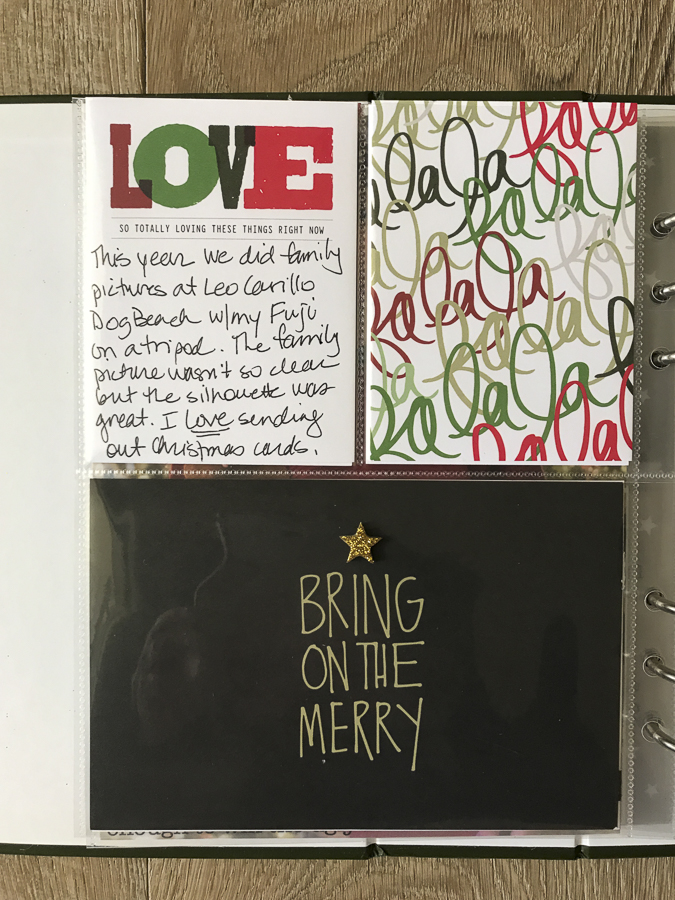 LOVE
SO TOTALLY LOVING THESE THINGS RIGHT NOW
This year we did family
pictures at Leo Carillo
Dog Beach w/my Fuji
on a tripod. The family
picture wasn't so clear
but the silhouette was
great. I love sending
out Christmas cards.
fa la la
fa la la
fa la la
fa la la
fa la la
fa la la
fa la la
BRING
ON THE
MERRY